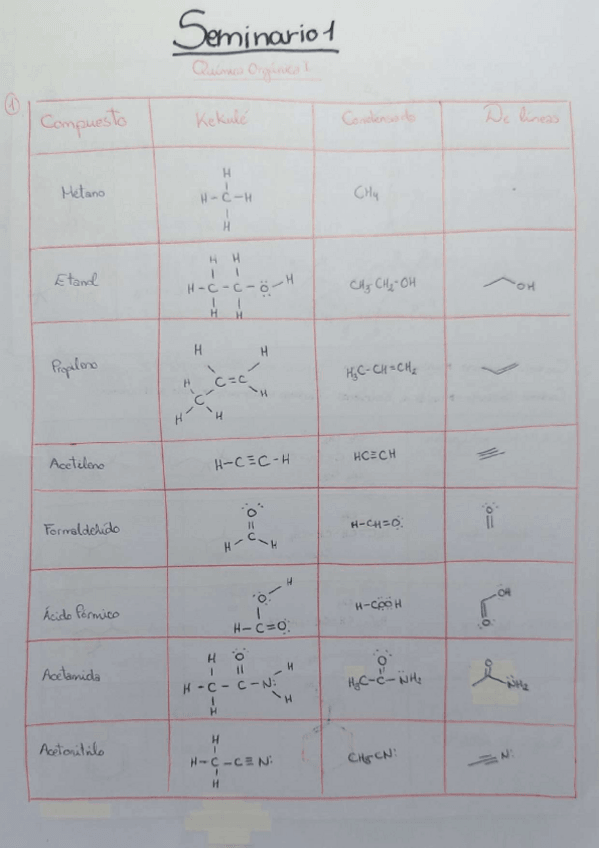 Seminario 1
Química Orgánica 1
① Compuesto Kekulé Condensado De líneas
Metano
H
H-C-H
H
CH4
Etanol
H H
H-C-C-Ö-H
H H
CH3 CH2-OH
OH
Propileno
H H
C=C
H H
C
H H
H3C-CH=CH2
Acetileno H-C≡C-H HC≡CH
Formaldehído
O
C
H H
H-CH=O
O
Ácido fórmico
H
O
H-C=O
H-COOH
OH
O
Acetamida
H O H
H-C-C-N:
H H
O
H3C-C-NH2
O
NH2
Acetonitrilo
H
H-C-C≡N:
H
CH3-CN:
N: